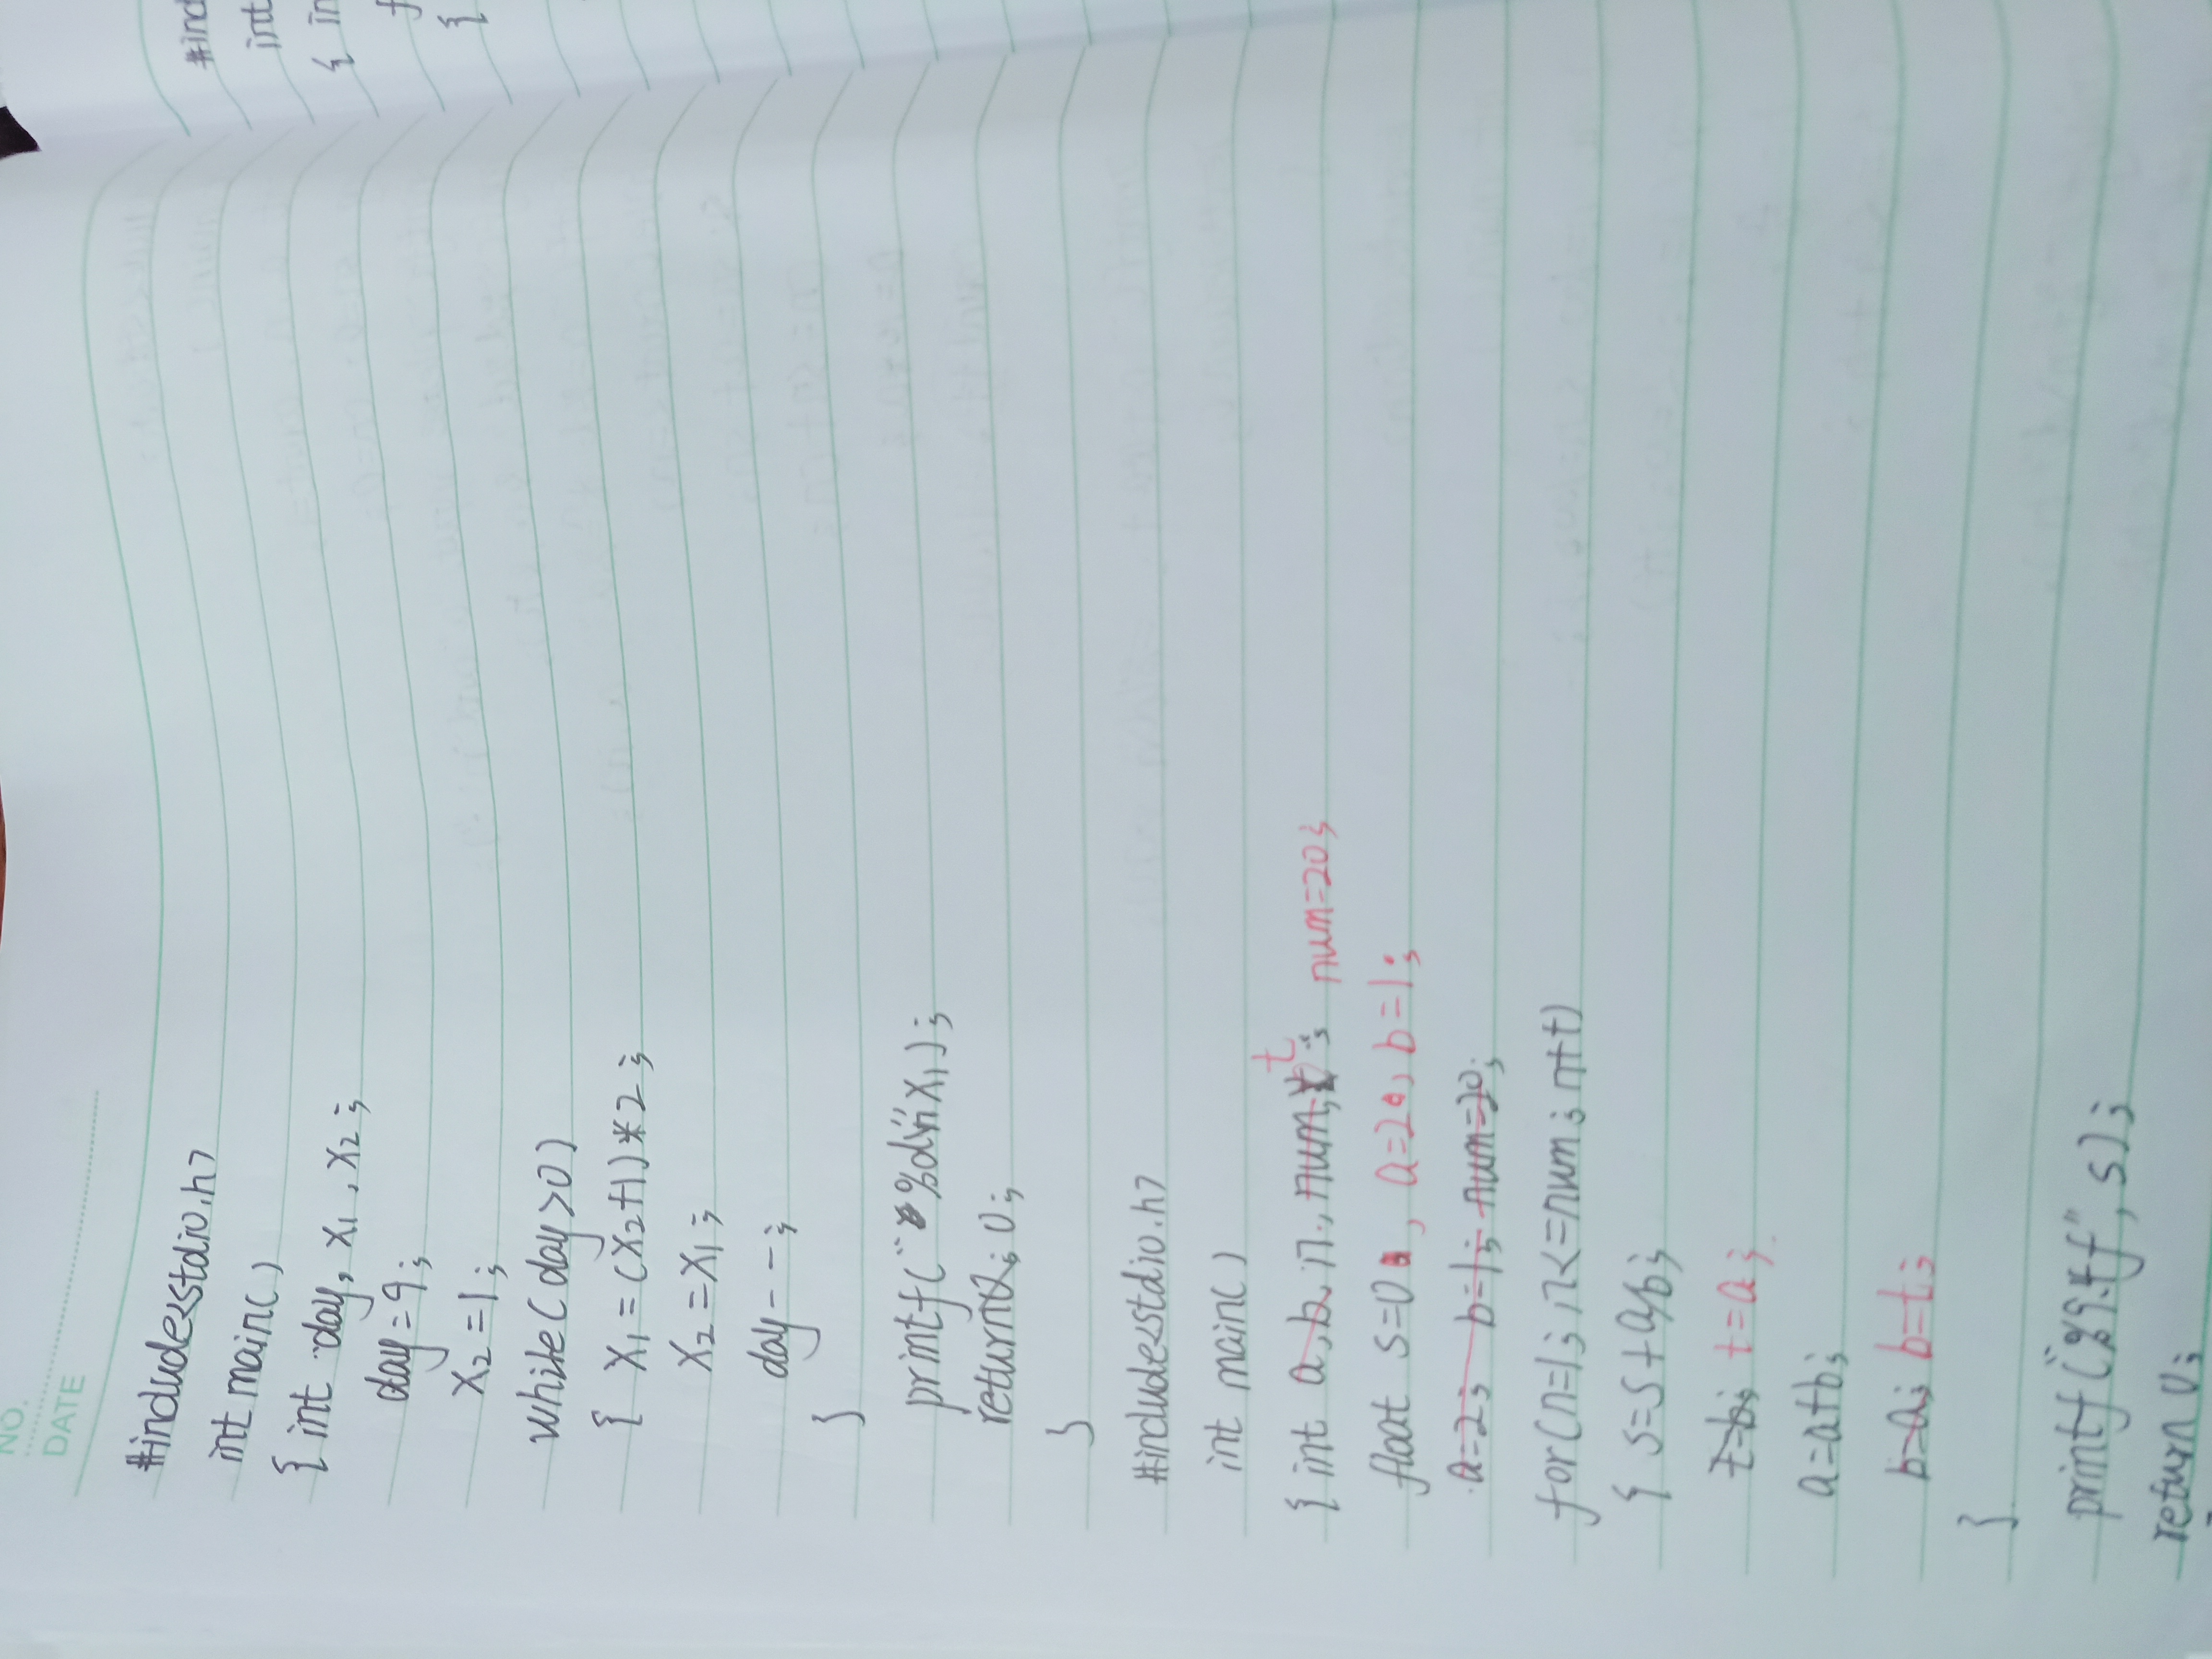 NO.
DATE
#include<stdio.h>
int main()
{ int day, x1, x2;
day=9;
x2=1;
while(day>0)
{ x1=(x2+1)*2;
x2=x1;
day--;
}
printf("%d\n"x1);
return 0;
}
#include<stdio.h>
int main()
{ int a,b,n,num,t; num=20;
float s=0, a=2, b=1;
a=2; b=1; num=20;
for(n=1;n<=num;n++)
{ s=s+a/b;
t=b; t=a;
a=a+b;
b=a; b=t;
}
printf("%9.ff",s);
return 0;
#incl
int
{ in
f
{